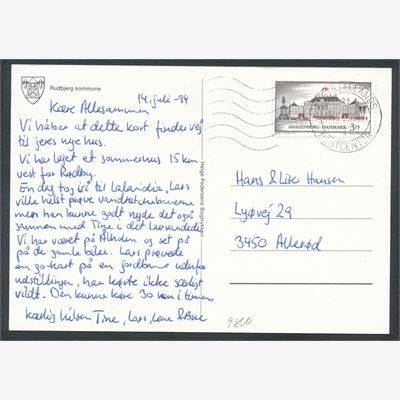 Rudbjerg kommune
14. juli - 94
Kære Allesammen
Vi håber at dette kort finder vej
til jeres nye hus.
Vi har lejet et sommerhus 15 km
vest for Rødby.
En dag tog vi til Lalandia, Lars
ville helst prøve vandrutchebanerne
men han kunne godt nyde det også
sammen med Tine i det lave vand.
Vi har været på Ålholm og set på
på de gamle biler. Lars prøvede
en go-kart på en jordbane udenfor
udstillingen, han kørte ikke særligt
vildt. Den kunne køre 30 km i timen
Kærlig hilsen Tine, Lars, Lene &
Helge Petersens Bogtrykkeri
AMALIENBORG · DANMARK 3.75
POSTCENTER
Hans & Lise Hansen
Lyøvej 29
3450 Allerød
9800